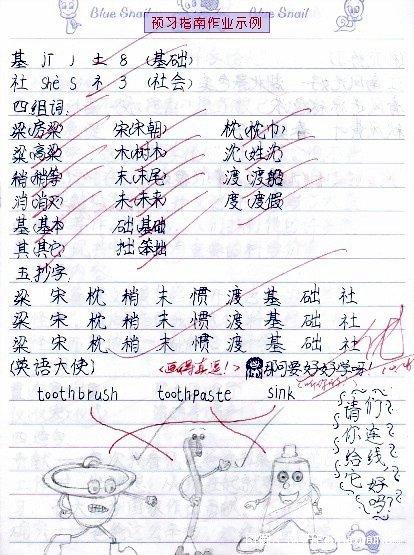 Blue Snail Blue Snail
预习指南作业示例
基 jī J 土 8 (基础)
社 shè S 礻 3 (社会)
四组词.
梁(房梁) 宋(宋朝) 枕(枕巾)
粱(高粱) 木(树木) 沈(姓沈)
稍(稍等) 末(末尾) 渡(渡船)
消(消灭) 未(未来) 度(度假)
基(基本) 础(基础)
其(其它) 拙(笨拙)
五抄字.
梁 宋 枕 稍 末 惯 渡 基 础 社
梁 宋 枕 稍 末 惯 渡 基 础 社
梁 宋 枕 稍 末 惯 渡 基 础 社
(英语大使) <画得真逗!> 那可要好好学呀!
toothbrush toothpaste sink
请你给它
们连线好吗?